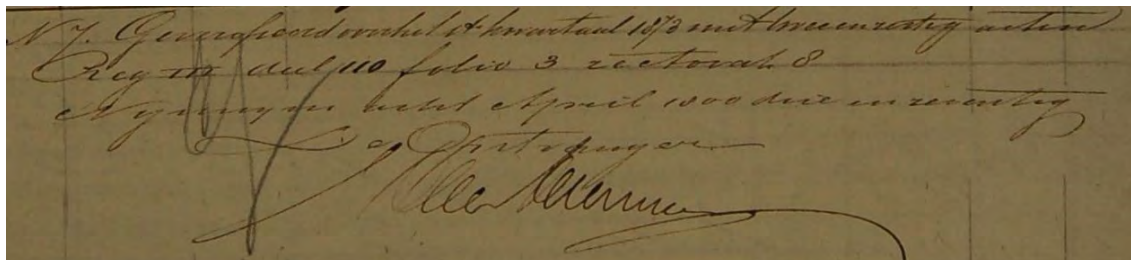 N 7. Geverifieerd voor het 1e kwartaal 1873 met twee en zestig acten
Reg III deel 110 folio 3 recto vak 8
Nijmegen acht April 1800 drie en zeventig
De Ontvanger